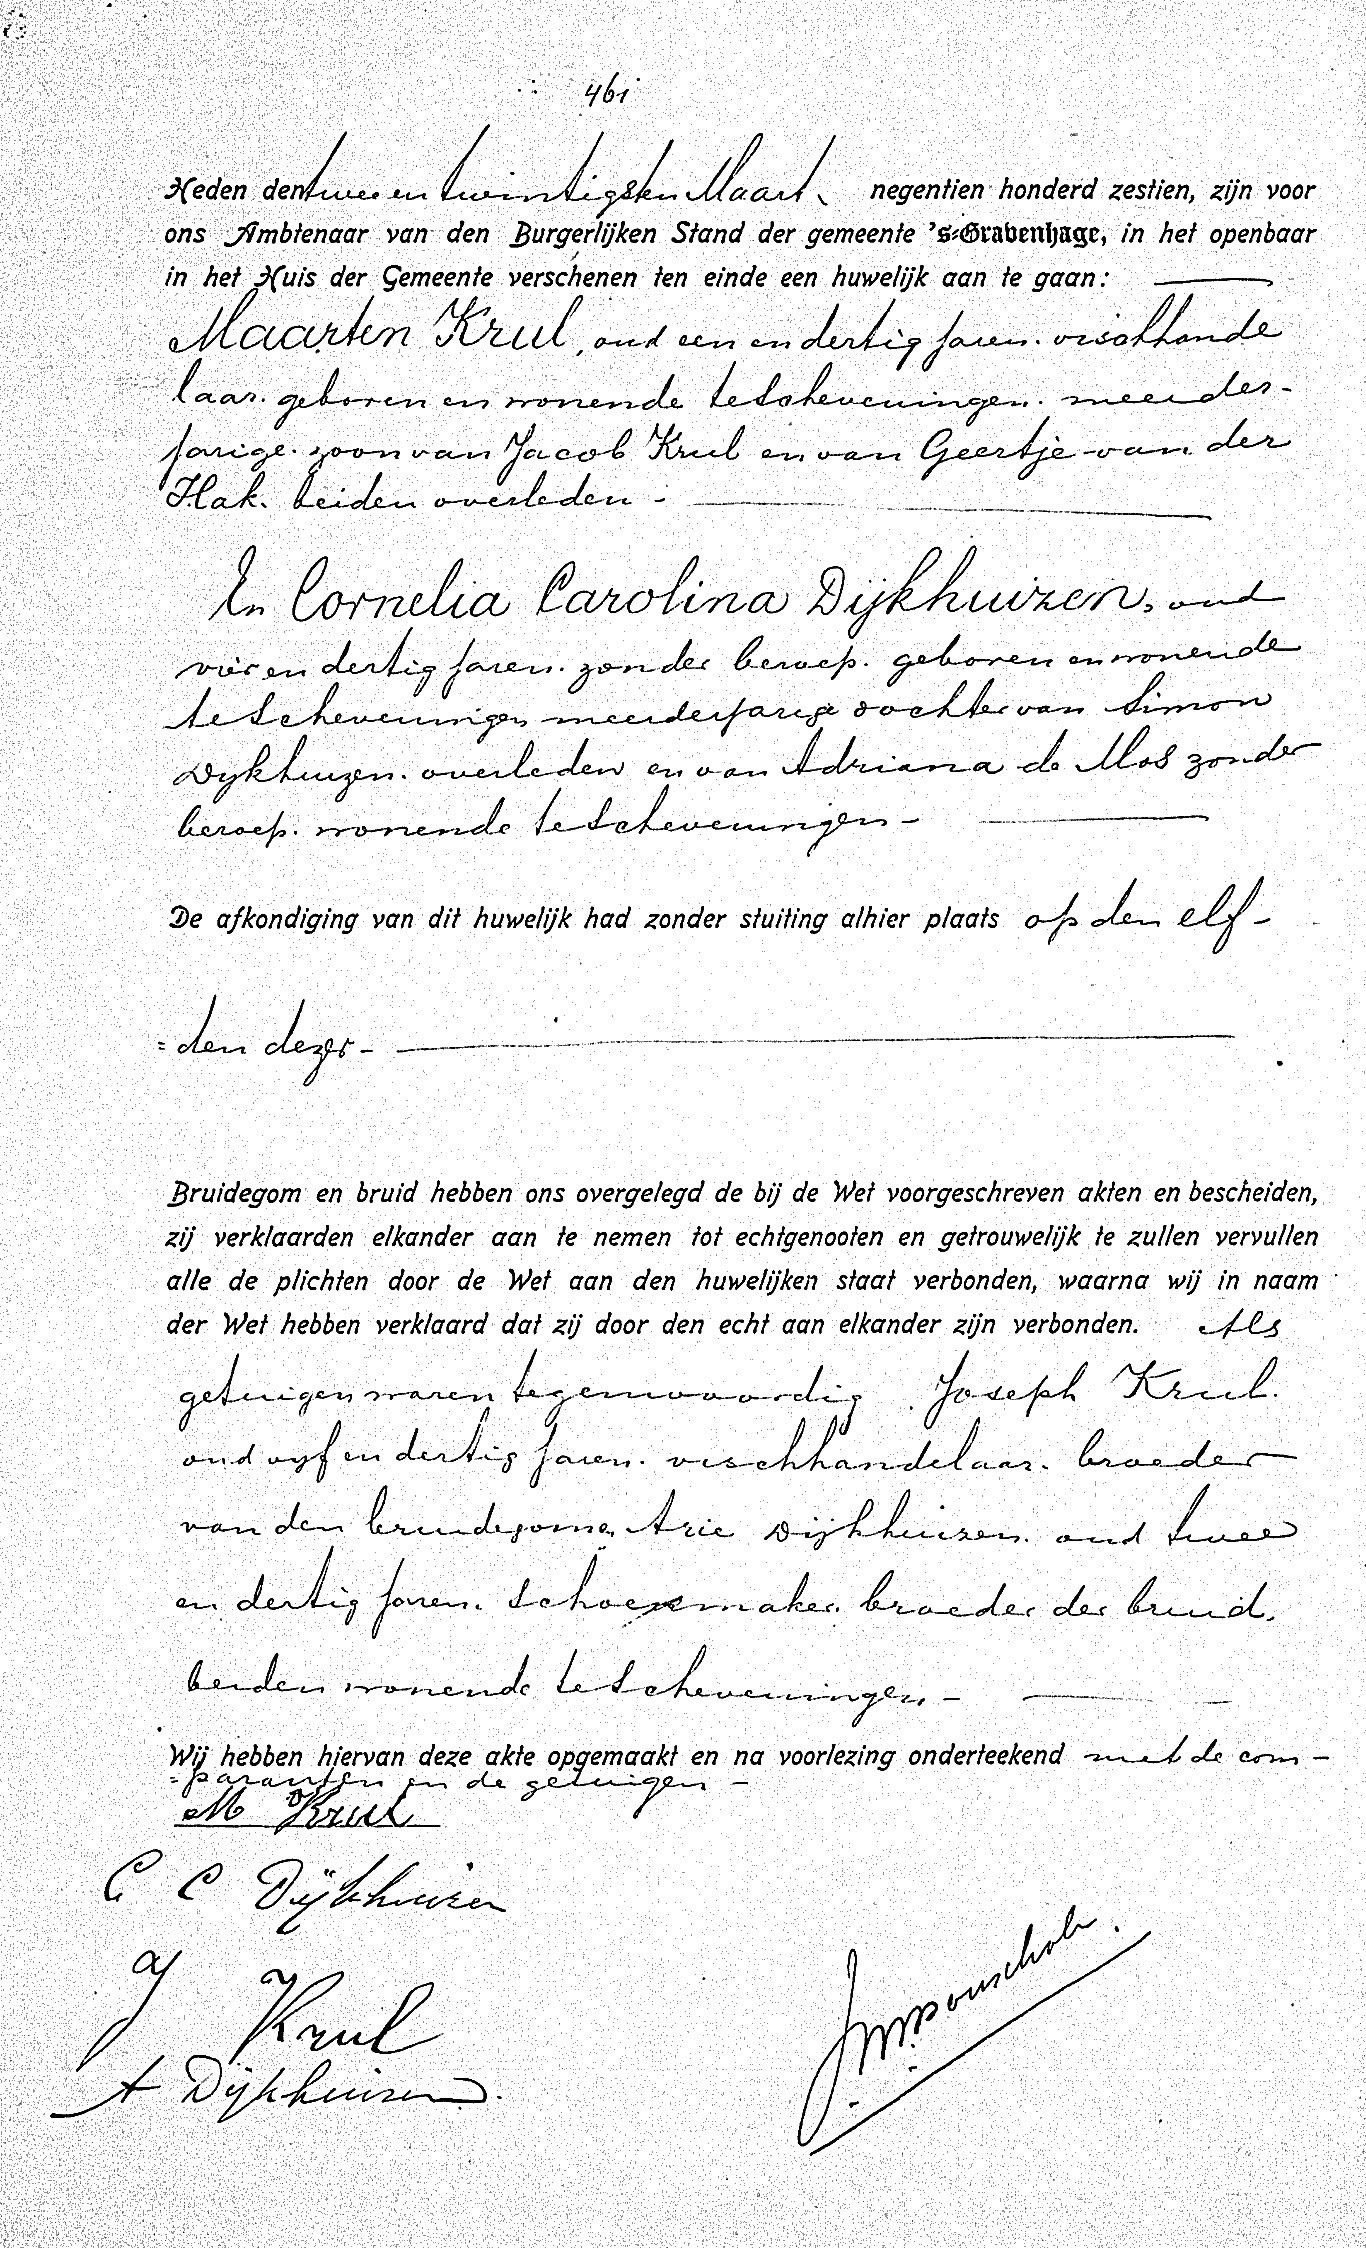 461
Heden den twee en twintigsten Maart, negentien honderd zestien, zijn voor
ons Ambtenaar van den Burgerlijken Stand der gemeente 's-Gravenhage, in het openbaar
in het Huis der Gemeente verschenen ten einde een huwelijk aan te gaan:
Maarten Krul, oud een en dertig jaren. vischhande
laar. geboren en wonende te Scheveningen. meerder-
jarige. zoon van Jacob Krul en van Geertje van der
Hak. beiden overleden -
En Cornelia Carolina Dijkhuizen, oud
vier en dertig jaren. zonder beroep. geboren en wonende
te Scheveningen meerderjarige dochter van Simon
Dykhuizen. overleden en van Adriana de Mos zonder
beroep. wonende te Scheveningen -
De afkondiging van dit huwelijk had zonder stuiting alhier plaats op den elf-
=den dezer-
Bruidegom en bruid hebben ons overgelegd de bij de Wet voorgeschreven akten en bescheiden,
zij verklaarden elkander aan te nemen tot echtgenooten en getrouwelijk te zullen vervullen
alle de plichten door de Wet aan den huwelijken staat verbonden, waarna wij in naam
der Wet hebben verklaard dat zij door den echt aan elkander zijn verbonden. Als
getuigen waren tegenwoordig Joseph Krul.
oud vyf en dertig jaren. vischhandelaar. broeder
van den bruidegom, Arie Dijkhuizen. oud twee
en dertig jaren. schoenmaker. broeder der bruid.
beiden wonende te Scheveningen -
Wij hebben hiervan deze akte opgemaakt en na voorlezing onderteekend met de com-
=paranten en de getuigen -
M Krul
C C Dijkhuizen
J Krul
A Dijkhuizen.